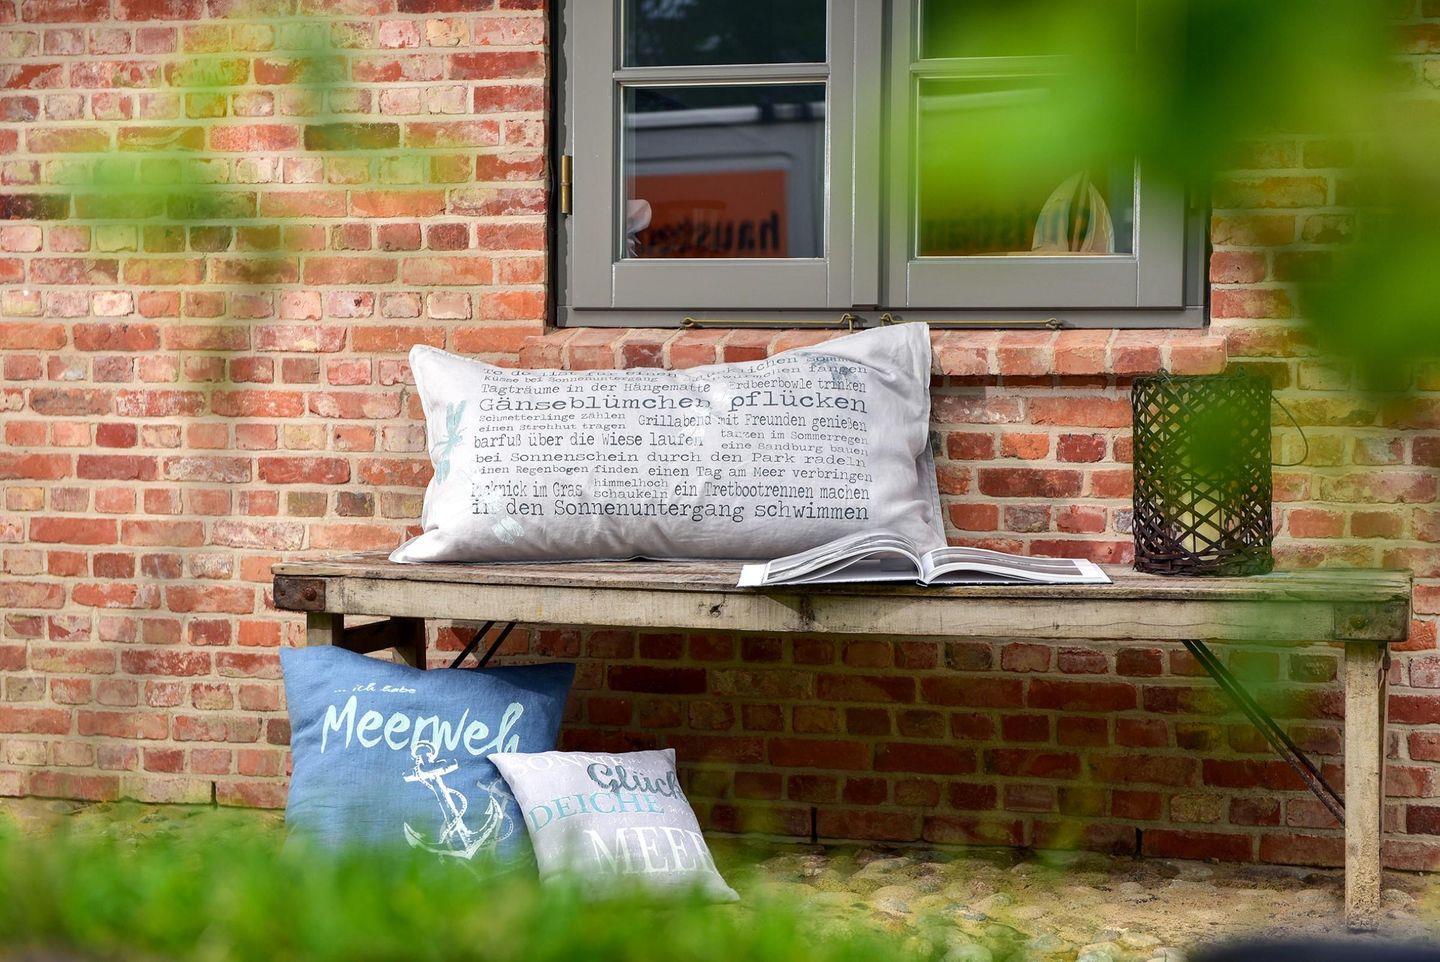 To do list für einen glücklichen Sommer
Küsse bei Sonnenuntergang fangen
Tagträume in der Hängematte Erdbeerbowle trinken
Gänseblümchen pflücken
Schmetterlinge zählen Grillabend mit Freunden genießen
einen Strohhut tragen
barfuß über die Wiese laufen tanzen im Sommerregen
eine Sandburg bauen
bei Sonnenschein durch den Park radeln
einen Regenbogen finden einen Tag am Meer verbringen
Picknick im Gras himmelhoch schaukeln ein Tretbootrennen machen
in den Sonnenuntergang schwimmen
... ich habe
Meerweh
SONNE
Glück
DEICHE
MEER